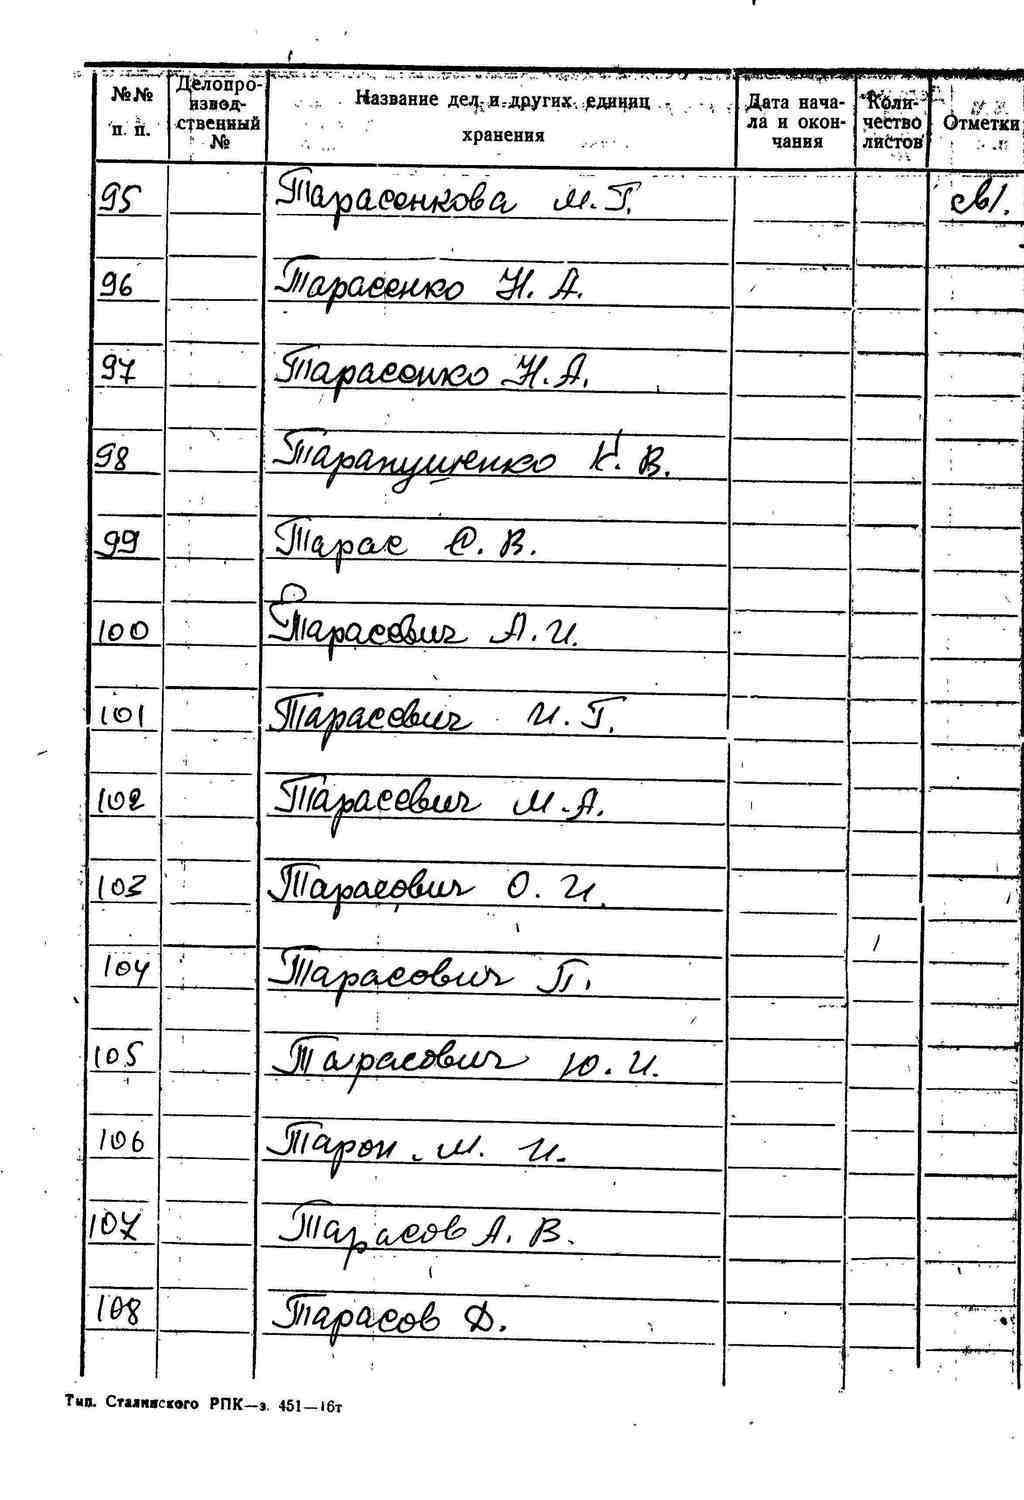 №№ п. п. Делопроизводственный № Название дел и других единиц хранения Дата начала и окончания Количество листов Отметки
95 Тарасенкова М. Г. св1.
96 Тарасенко Н. А.
97 Тарасенко Н. А.
98 Тарапущенко К. В.
99 Тарас С. В.
100 Тарасович А. И.
101 Тарасевич И. Г.
102 Тарасевич М. А.
103 Тарасович О. И.
104 Тарасович П.
105 Тарасович Ю. И.
106 Тарон М. И.
107 Тарасов А. В.
108 Тарасов Д.
Тип. Сталинского РПК—з. 451—16т